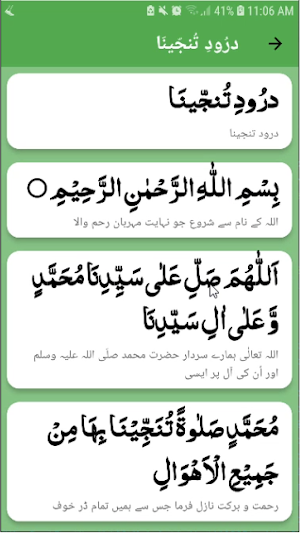 41% 11:06 AM
درُودِ تُنجَینَا
درُودِ تُنجّینَا
درود تنجینا
بِسْمِ اللّٰهِ الرَّحْمٰنِ الرَّحِیْمِ ○
اللہ کے نام سے شروع جو نہایت مہربان رحم والا
اَللّٰهُمَّ صَلِّ عَلٰی سَیِّدِنَا مُحَمَّدٍ
وَّ عَلٰی اٰلِ سَیِّدِنَا
اللہ تعالٰی ہمارے سردار حضرت محمد صلّی اللہ علیہ وسلم
اور اُن کی آل پر ایسی
مُحَمَّدٍ صَلٰوةً تُنَجِّیْنَا بِهَا مِنْ
جَمِیْعِ الْاَهْوَالِ
رحمت و برکت نازل فرما جس سے ہمیں تمام ڈر خوف